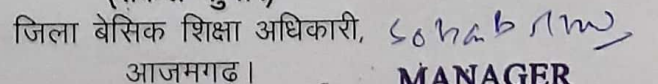 जिला बेसिक शिक्षा अधिकारी,
आजमगढ।
MANAGER